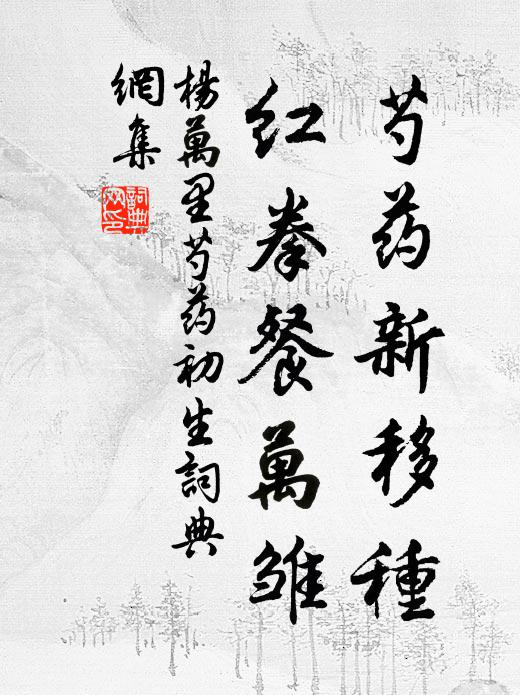 芍药新移種
红拳餐萬雏
楊萬里芍药初生詞典
網集
詞典
网印